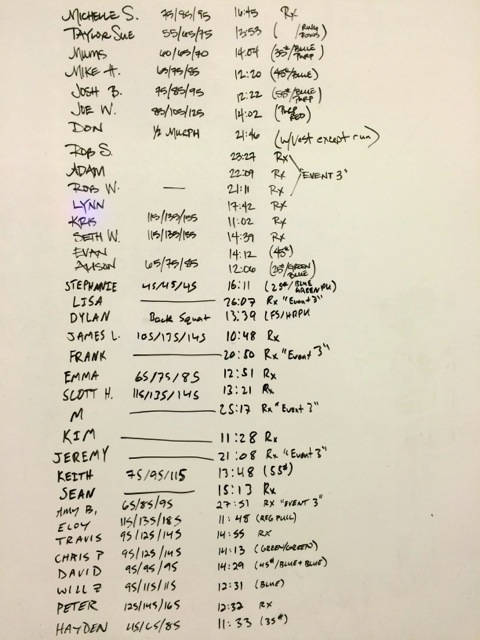 MICHELLE S. 75/85/95 16:45 Rx
TAYLOR SUE 55/65/75 13:53 ( /RING ROWS)
MUMS 60/65/70 14:04 (35#/BLUE PURP)
MIKE H. 65/75/85 12:20 (45#/BLUE)
JOSH B. 75/85/95 12:22 (55#/BLUE PURP)
JOE W. 85/105/125 14:02 (PURP RED)
DON 1/2 MURPH 21:46 (w/Vest except run)
ROB S. 23:27 Rx
ADAM 22:09 Rx "EVENT 3"
ROB W. — 21:11 Rx
LYNN 17:42 Rx
KRIS 115/135/155 11:02 Rx
SETH W. 115/135/155 14:39 Rx
EVAN 14:12 (45#)
ALISON 65/75/85 12:06 (25#/GREEN BLUE)
STEPHANIE 45/45/45 16:11 (25#/BLUE GREEN PU)
LISA — 26:07 Rx "Event 3"
DYLAN Back Squat 13:39 LFS/HRPU
JAMES L. 105/135/145 10:48 Rx
FRANK — 20:50 Rx "Event 3"
EMMA 65/75/85 12:51 Rx
SCOTT H. 115/135/145 13:21 Rx
M — 25:17 Rx "Event 3"
KIM — 11:28 Rx
JEREMY — 21:08 Rx "Event 3"
KEITH 75/95/115 13:48 (55#)
SEAN — 15:13 Rx
AMY B. 65/85/95 27:51 Rx "EVENT 3"
ELOY 115/135/185 11:48 (REG PULL)
TRAVIS 95/125/145 14:55 RX
CHRIS P 95/125/145 14:13 (GREEN/GREEN)
DAVID 95/95/95 14:29 (45#/BLUE+BLUE)
WILL Z 95/115/115 12:31 (BLUE)
PETER 125/145/165 12:32 RX
HAYDEN 45/65/85 11:33 (35#)